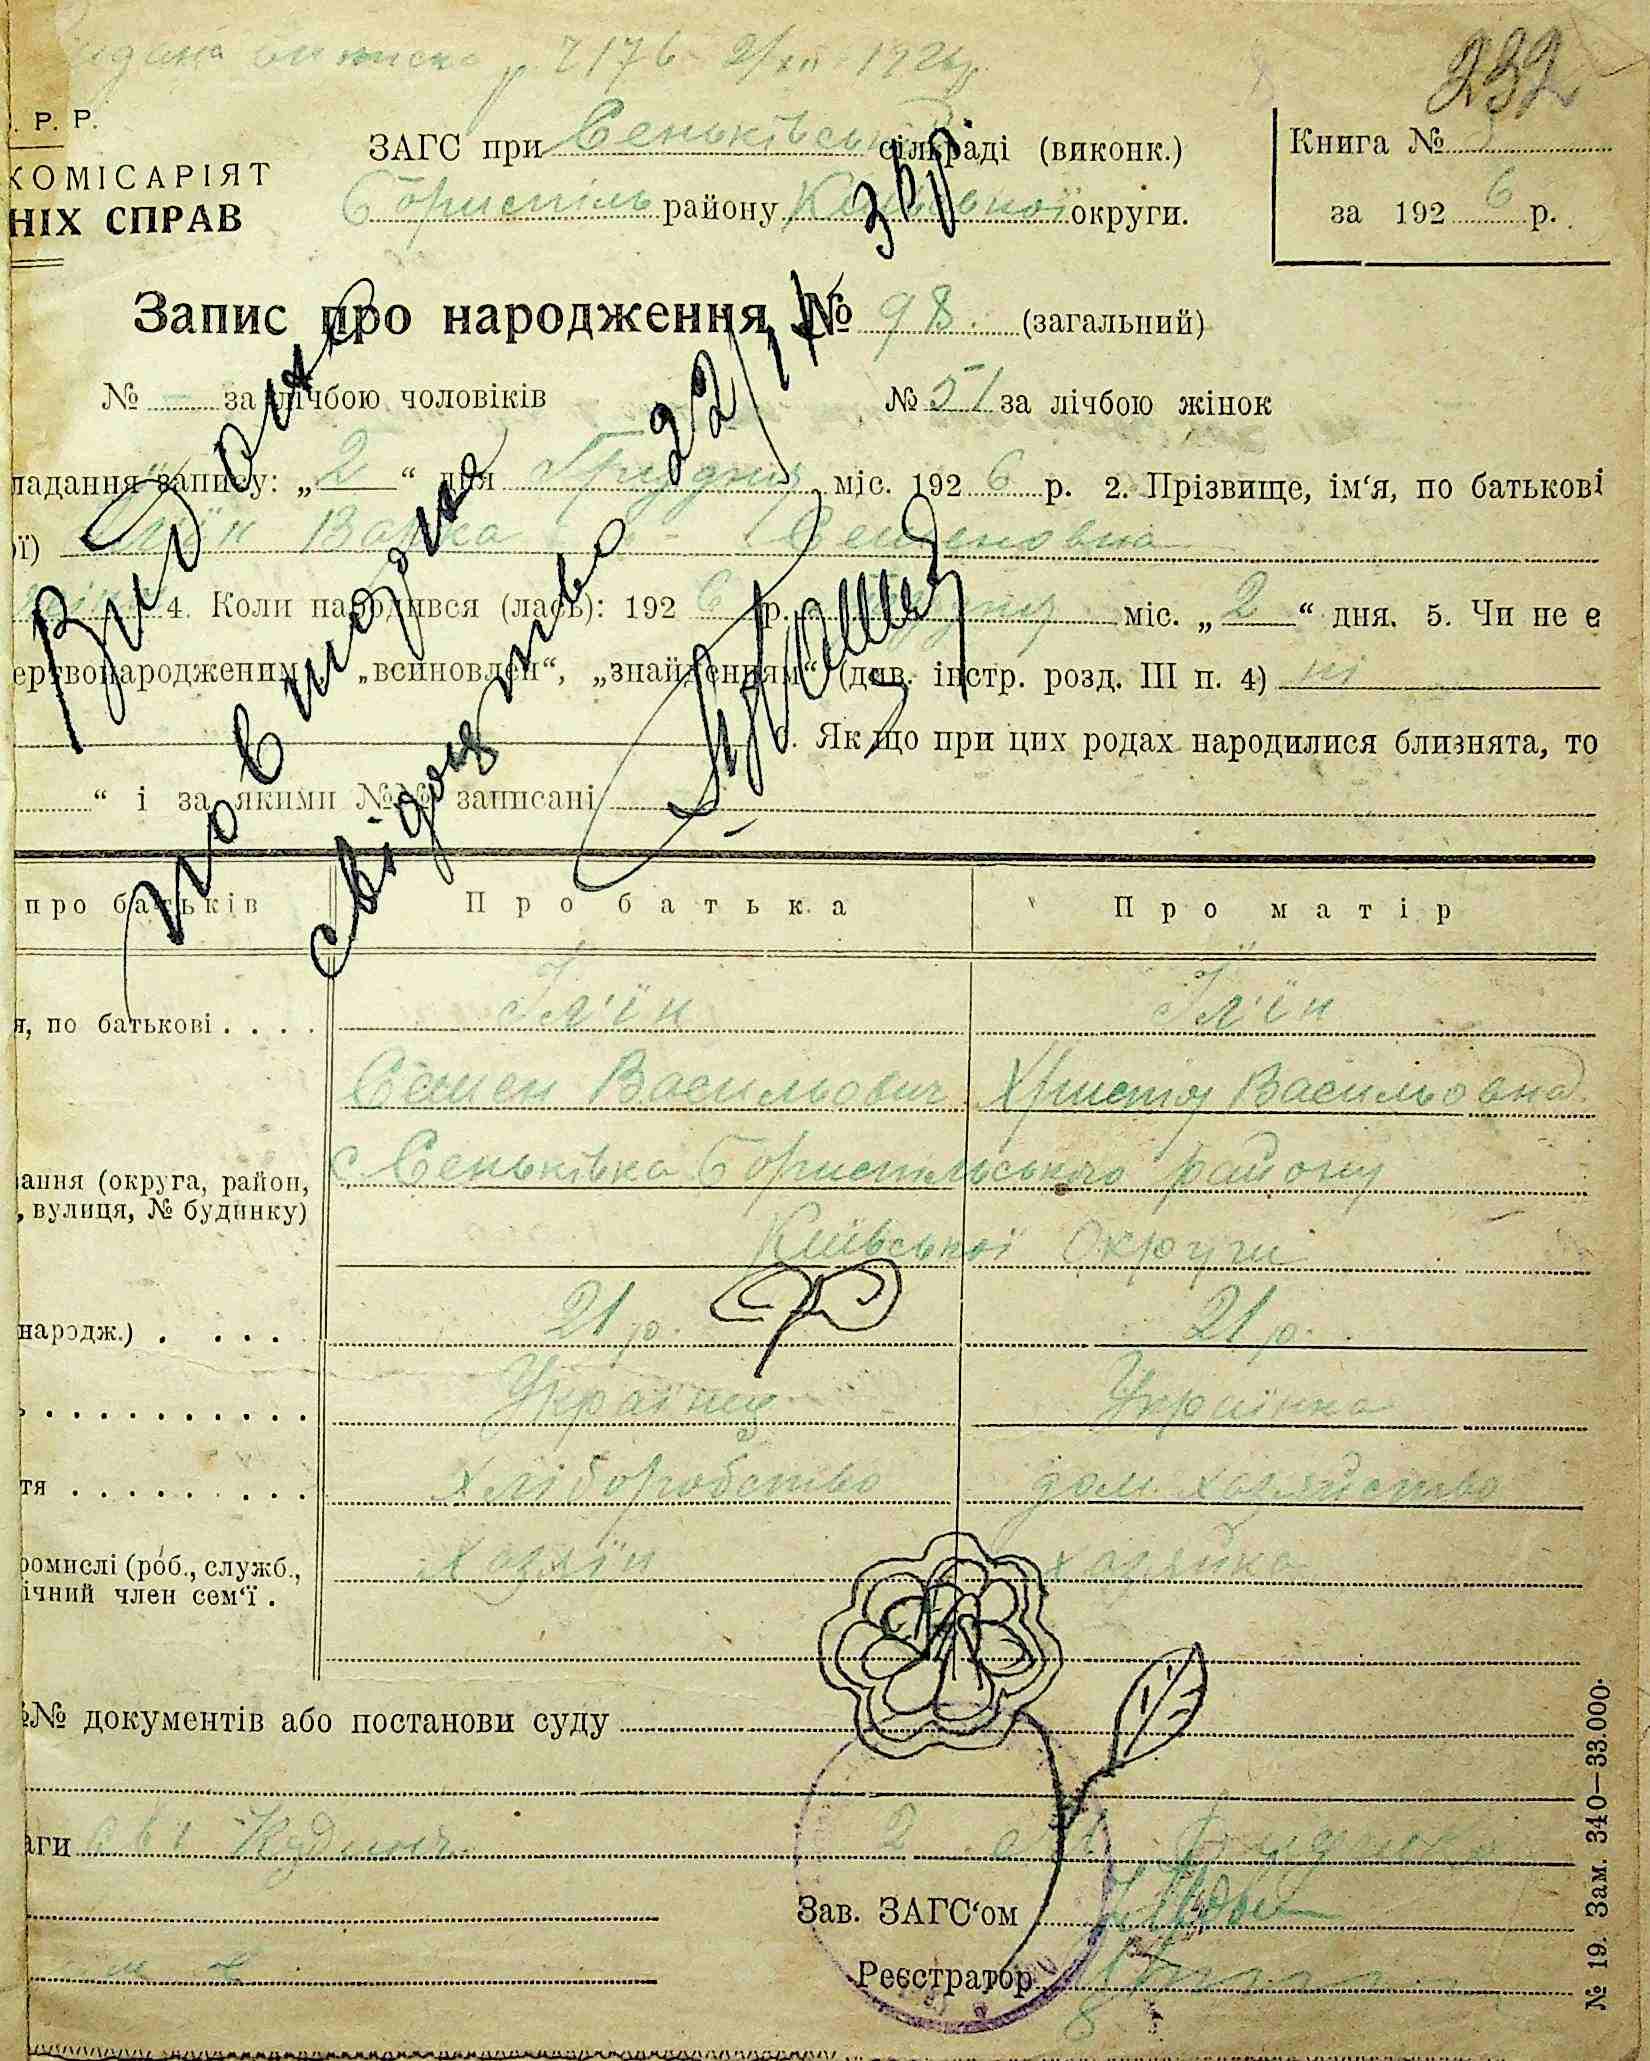 видана виписка р. 7176 2/XII 1926р.
232
. Р. Р.
ЗАГС при Сеньківській сільраді (виконк.)
Книга №
КОМІСАРІЯТ
Бориспіль району Київської округи.
за 192 6 р.
НІХ СПРАВ
Запис про народження № 98 (загальний)
№ – за лічбою чоловіків № 51 за лічбою жінок
ладання запису: „ 2 “ дня Грудня міс. 192 6 р. 2. Прізвище, ім‘я, по батькові
ої) Іл'їн Варка Семеновна
4. Коли народився (лась): 192 6 р. Грудня міс. „ 2 “ дня. 5. Чи не є
ертвонародженим, „всиновлен“, „знайденням“ (див. інстр. розд. III п. 4) ні
6. Якщо при цих родах народилися близнята, то
“ і за якими №№ записані
Видано
повторно 22/VI 38р
свідоцтво
про батьків
Про батька
Про матір
я, по батькові . . . .
Іл'їн
Іл'їн
Семен Васильович
Христя Васильовна
с. Сеньківка Бориспільського району
ання (округа, район,
, вулиця, № будинку)
Київської Округи
народж.) . . . .
21 р.
21 р.
Українец
Українка
тя
хліборобство
дом. хазяйство
ромислі (роб., служб.,
ічний член сем‘ї .
хазяїн
хазяйка
№№ документів або постанови суду
аги
Зав. ЗАГС‘ом
Реєстратор
№ 19. Зам. 340—33.000.